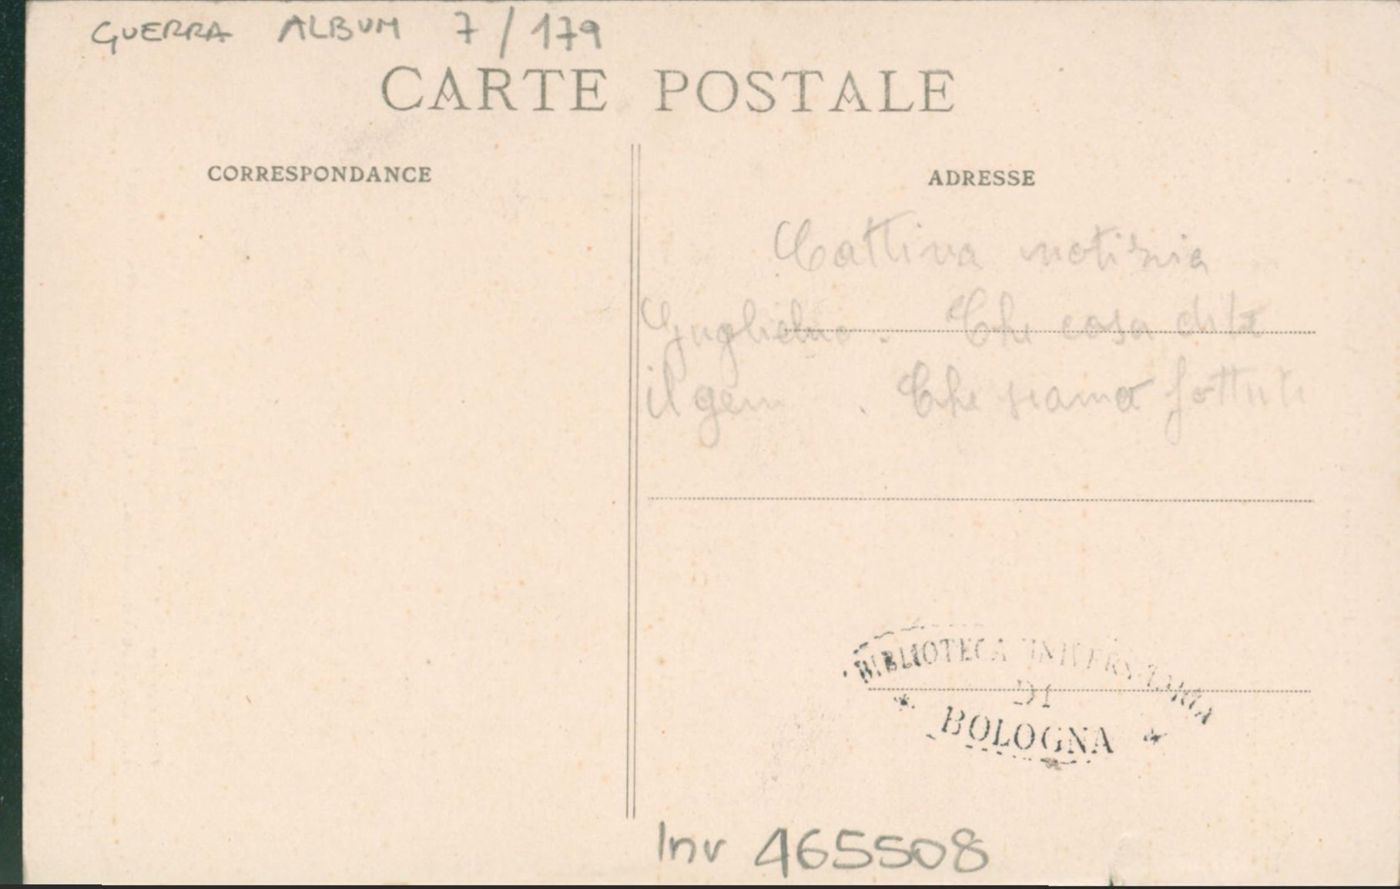 GUERRA ALBUM 7/179
CARTE POSTALE
CORRESPONDANCE
ADRESSE
Cattiva notizia
Guglielmo. Che cosa dite
il gen . Che siamo fottuti
BIBLIOTECA UNIVERSITARIA
DI
* BOLOGNA *
Inv 465508